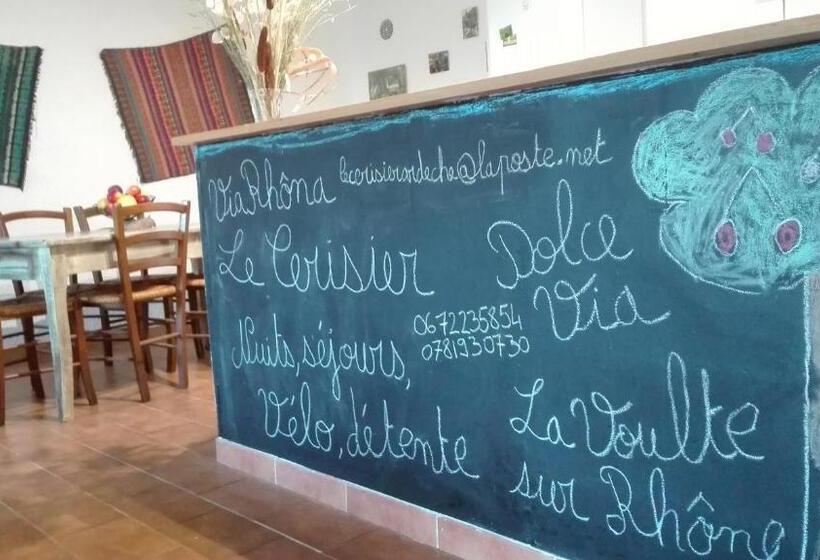 ViaRhôna lecerisierardeche@laposte.net
Le Cerisier
Dolce
Via
0672235854
0781930730
Nuits, séjours,
Vélo, détente
La Voulte
sur Rhône